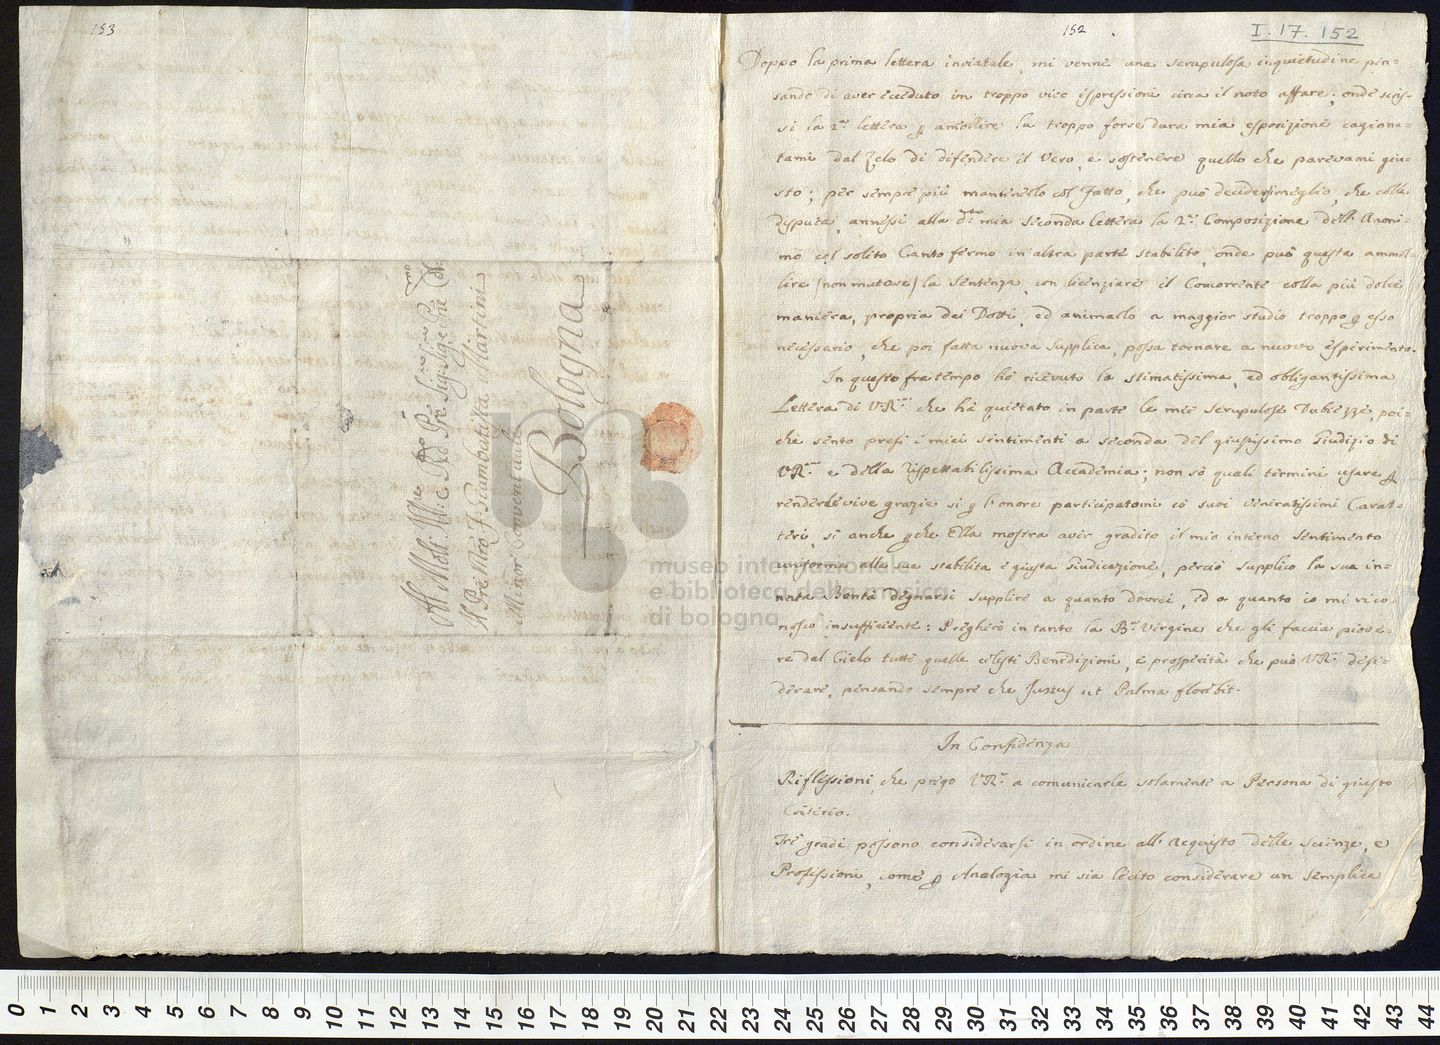 153
Al Molto Rev.do P.re P.re Sig. Sig.e P.ne Col.mo
Il P.re Mro F. Giambatista Martini
Minor Conventuale
Bologna
152
I. 17. 152
Doppo la prima lettera inviatale, mi venne una scrupulosa inquietudine pen-
sando di aver ecceduto in troppo vive espressioni circa il noto affare; onde scris-
si la 2.a lettera p amollire la troppo forse dura mia esposizione cagiona-
tami dal Zelo di difendere il Vero, e sostenere quello che parevami giu-
sto; per sempre più mantenerlo col Fatto, che può decider meglio, che colle
dispute, annessi alla d.ta mia seconda lettera la 2.a Composizione dell' Anoni-
mo col solito Canto fermo in altra parte stabilito, onde può questa ammol-
lire (non mutare) la Sentenza, con licenziare il Concorrente colla più dolce
maniera, propria dei Dotti, ed animarlo a maggior studio troppo p esso
necessario, che poi fatta nuova supplica, possa tornare a nuovo esperimento.
In questo fra tempo hò ricevuto la stimatissima, ed obligantissima
Lettera di V.R. che hà quietato in parte le mie scrupulose Dubiezze, poi-
che sento presi i miei sentimenti a seconda del giustissimo Giudizio di
V.R. e della rispettabilissima Accademia; non sò quali termini usare p
renderle vive grazie si p l'onore participatomi co' suoi veneratissimi Carat-
teri, si anche p che Ella mostra aver gradito il mio interno sentimento
uniforme alla sua stabilita e giusta Giudicazione, perciò supplico la sua in-
nata Bontà degnarsi supplire a quanto dovrei, ed a quanto io mi rico-
nosco insufficiente: Pregherò in tanto la B. Vergine che gli faccia piove-
re dal Cielo tutte quelle celesti Benedizioni, e prosperità che può V.R. desi-
derare, pensando sempre che Justus ut Palma florebit.
In Confidenza
Riflessioni, che prego V.R. a comunicarle solamente a Persona di giusto
Criterio.
Tre gradi possono considerarsi in ordine all' Acquisto delle Scienze, e
Professioni, come p Analogia mi sia lecito considerare un semplice
museo internazionale
e biblioteca della musica
di bologna
0 1 2 3 4 5 6 7 8 9 10 11 12 13 14 15 16 17 18 19 20 21 22 23 24 25 26 27 28 29 30 31 32 33 34 35 36 37 38 39 40 41 42 43 44